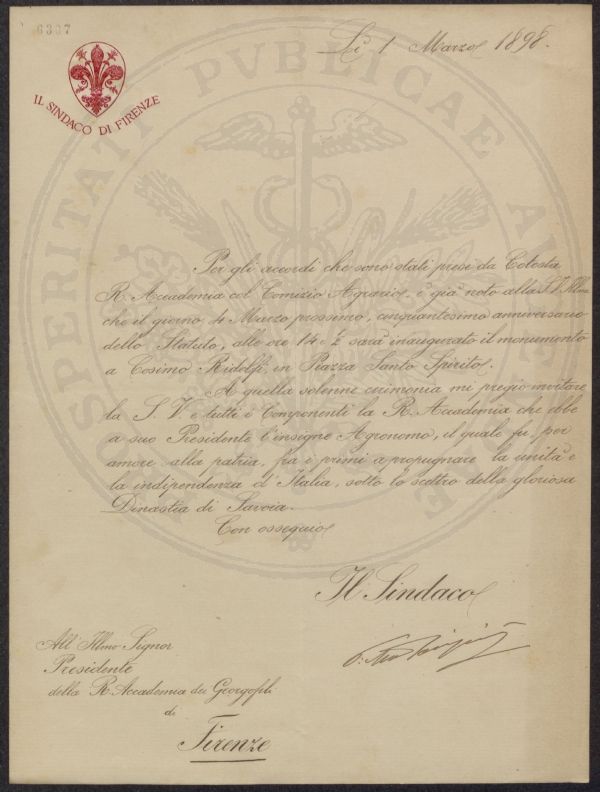 6307
Lì 1 Marzo 1898.
IL SINDACO DI FIRENZE
PROSPERITATI PVBLICAE AVGENDAE
Per gli accordi che sono stati presi da Cotesta
R. Accademia col Comizio Agrario, è già noto alla S. V. Illma
che il giorno 4 Marzo prossimo, cinquantesimo anniversario
dello Statuto, alle ore 14 ½ sarà inaugurato il monumento
a Cosimo Ridolfi, in Piazza Santo Spirito.
A quella solenne cerimonia mi pregio invitare
la S. V. e tutti i Componenti la R. Accademia che ebbe
a suo Presidente l'insigne Agronomo, il quale fu, per
amore alla patria, fra i primi a propugnare la unità e
la indipendenza d'Italia, sotto lo scettro della gloriosa
Dinastia di Savoia.
Con ossequio
Il Sindaco
All' Illmo Signor
Presidente
della R. Accademia dei Georgofili
di
Firenze